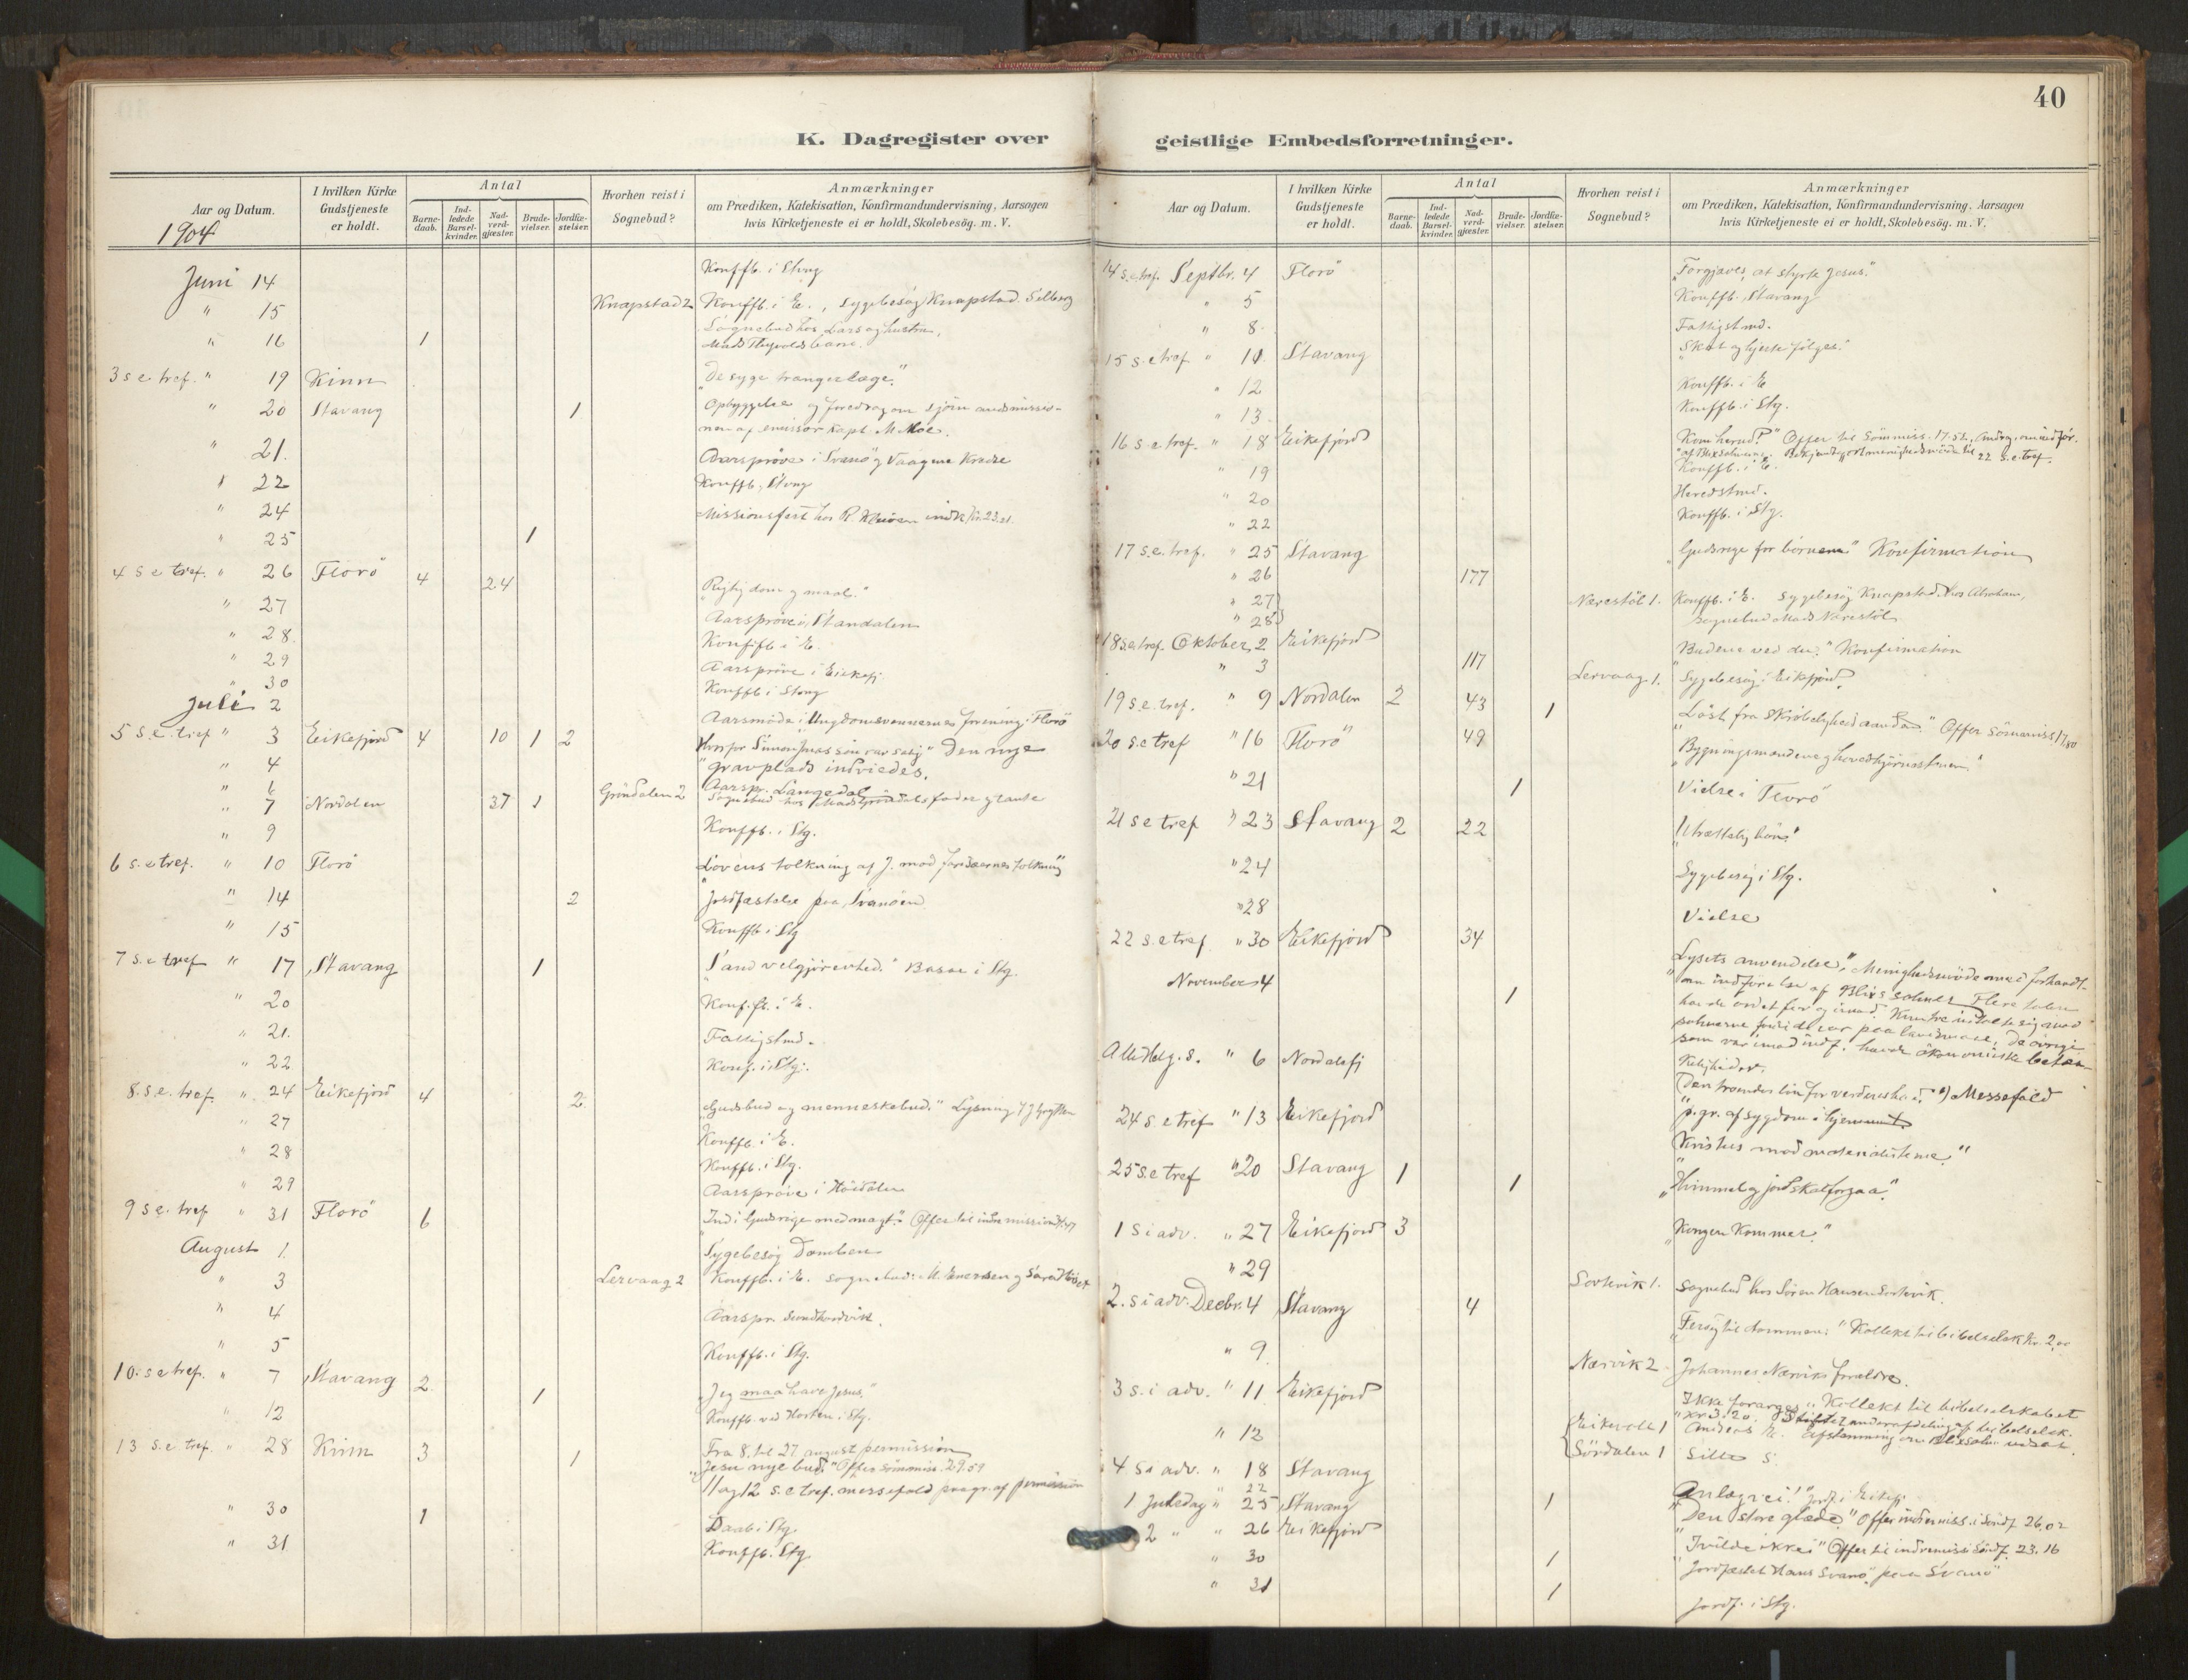 40
K. Dagregister over geistlige Embedsforretninger.
Aar og Datum.
I hvilken Kirke Gudstjeneste er holdt.
Antal
Barne-daab.
Ind-ledede Barsel-kvinder.
Nad-verd-gjæster.
Brude-vielser.
Jordfæ-stelser.
Hvorhen reist i Sognebud?
Anmærkninger
om Prædiken, Katekisation, Konfirmandundervisning, Aarsagen
hvis Kirketjeneste ei er holdt, Skolebesög. m. V.
1904
Juni 14 Konffb. i Stvng
" 15 Knapstad 2 Konffb. i E., sygebesög Knapstad. Solberg
Sognebud hos Lars og hustru,
" 16 1
3 s e tref. " 19 Kinn "De syge trænger læge."
" 20 Stavang 1 Opbyggelse og foredrag om sjömandsmissio-
nen af emissær kapt. M Moe.
" 21. Aarspröve i Svanö og Vaagene Kredse
" 22 Konffb, Stvng
" 24 Missionsfest hos R.
" 25 1
4 s e tref. " 26 Florö 4 24 "Rigtig dom og maal."
" 27 Aarspröve i Standalen
" 28. Konffb i E.
" 29 Aarspröve i Eikefj.
" 30 Konffb i Stvng
Juli 2 Aarsmöde i Ungdomsvennernes forening i Florö
5 S.e. tref " 3 Eikefjord 4 10 1 2 Den nye
" 4 gravplads indviedes.
" 6 Aarspr. Langedal
" 7 Nordalen 37 1 Gröndalen 2 Sognebud hos fader og tante
" 9 Konffb. i Stg.
6 s. e tref. " 10 Florö Lovens tolkning af J. mod farisæernes tolkning
" 14 2 Jordfæstelse paa Svanöen
" 15 Konffb i Stg
7 s.e tref " 17 Stavang 1 "Sand velgjörenhed." Basar i Stg.
" 20 Konf.fb. i E.
" 21. Fattigstmd.
" 22 Konf. i Stg.
8. s.e. tref. " 24 Eikefjord 4 2 "Gudsbud og menneskebud." Lysning
" 27 Konffb. i E.
" 28 Konffb. i Stg.
" 29 Aarspröve i Höidalen
9 s e. tref " 31 Florö 6 "Ind i Gudsrige med magt." Offer til indre mission
August 1. Sygebesög
" 3 Lervaag 2 Konffb. i E. sognebud:
" 4 Aarspr.
" 5 Konffb. i Stg.
10. s e tref. " 7 Stavang 2 1 "Jeg maa have Jesus."
" 12 Konffb. ved Horten. i Stg.
13 s.e tref. " 28 Kinn 3 1 Fra 8. til 27 august permission
"Jesu nye bud." Offer sömmiss. 29.59
11 og 12 s.e tref. messefald paa gr. af permission
" 30 1 Daab i Stg
" 31 Konffb. Stg
Aar og Datum.
I hvilken Kirke Gudstjeneste er holdt.
Antal
Barne-daab.
Ind-ledede Barsel-kvinder.
Nad-verd-gjæster.
Brude-vielser.
Jordfæ-stelser.
Hvorhen reist i Sognebud?
Anmærkninger
om Prædiken, Katekisation, Konfirmandundervisning, Aarsagen
hvis Kirketjeneste ei er holdt, Skolebesög. m. V.
14 s.e. tref. Septbr. 4 Florö "Forgjæves, at styrte Jesus."
" 5 Konffb. Stavang
" 8. Fattigstmd.
15 s.e tref " 11. Stavang "Skat og hjerte fölges."
" 12 Konffb. i E
" 13. Konffb. i Stg.
16 s e tref. " 18 Eikefjord Kom herud!" Offer til Sömmiss. 17.52,
22 s.e. tref.
" 19 Konffb. i E.
" 20 Heredstmd.
" 22 Konffb. i Stg.
17 s.e. tref. " 25 Stavang "Gudsrige for börnene." Konfirmation
" 26 177
" 27 Nærestöl 1. Konffb. i E. sygebesög Knapstad. hos Abraham,
" 28 sognebud Mads Nærestöl
18 s.e. tref. Oktober 2 Eikefjord Konfirmation
" 3 117 Lervaag 1. Sygebesög i Eikefjord.
19 s.e. tref. " 9 Nordalen 2 43 1 "Löst fra skröbelighedsaanden." Offer sömmiss 17,80
20 s.e tref " 16 Florö 49 "Bygningsmændene og hovedhjörnestenen."
" 21 1 Vielse i Florö
21 s e tref " 23 Stavang 2 22 "Utrættelig bön."
" 24 Sygebesög i Stg.
" 28 Vielse
22 s.e tref " 30 Eikefjord 34 "Lysets anvendelse," Menighedsmöde med forhandl.
November 4 1 om indförelse af Blix's salmer Flere talere
havde ordet for og imod. Kun tre udtalte sig mod
salmerne fordi de var paa landsmaal, de övrige
som var imod indf. havde ökonomiske betæn-
keligheder.
Alle Helg. s. " 6 Nordalsfj
24 s.e tref " 13 Eikefjord Messefald
p. gr. af sygdom i hjemmet
25 s.e tref " 20 Stavang 1 1 "Kristus mod materialisterne."
"Himmel og jord skal forgaa."
1 s i adv. " 27 Eikefjord 3 "Kongen kommer."
" 29 Sortevik 1. Sognebud hos Sören Hansen Sortevik.
2. s i adv. Decbr. 4 Stavang 4 Kollekt til bibelselsk Kr. 2,00
" 9 Nærvik 2 Johannes Nærviks forældre.
3 s. i adv. " 11 Eikefjord Ikke forarges" Kollekt til bibelselskabet
Kr 3.20. afstemning om Blixsalm. udsat.
" 12 Eikevoll 1 Anders E.
Sördalen 1 S.
4 s i adv. " 18 Stavang
" 22 1 Jordf. i Eikefj
1 Juledag " 25 Stavang "Den store glæde." Offer indremiss. i Söndf 26.02
2 " " 26 Eikefjord "I vilde ikke!" Offer til indremiss i Söndf. 23.16
" 30 1 Jordfæstet Hans Svanö paa Svanö
" 31 1 Jordf. i Stg.